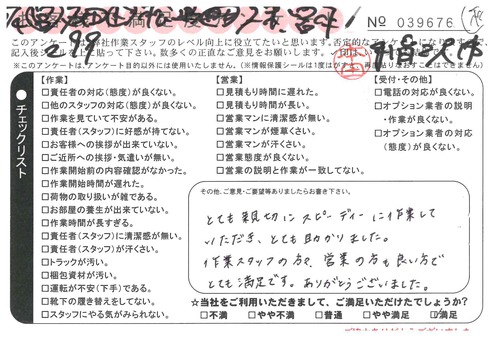 No 039676
このアンケートは弊社作業スタッフのレベル向上に役立てたいと思います。否定的なアンケート
※このアンケートは、アンケート目的以外には使用いたしません。
チェックリスト
【作業】
□責任者の対応(態度)が良くない。
□他のスタッフの対応(態度)が良くない。
□作業を見ていて不安がある。
□責任者(スタッフ)に好感が持てない。
□お客様への挨拶が出来ていない。
□ご近所への挨拶・気遣いが無い。
□作業開始前の内容確認がなかった。
□作業開始時間が遅れた。
□荷物の取り扱いが雑である。
□お部屋の養生が出来ていない。
□作業時間が長すぎる。
□責任者(スタッフ)に清潔感が無い。
□責任者(スタッフ)が汗くさい。
□トラックが汚い。
□梱包資材が汚い。
□運転が不安(下手)である。
□靴下の履き替えをしてない。
□スタッフにやる気がみられない。
【営業】
□見積もり時間に遅れた。
□見積もり時間が長い。
□営業マンに清潔感が無い。
□営業マンが煙草くさい。
□営業マンが汗くさい。
□営業態度が良くない。
□営業の説明と作業が一致してない。
【受付・その他】
□電話の対応が良くない。
□オプション業者の説明
・作業が良くない。
□オプション業者の対応
(態度)が良くない。
その他、ご意見・ご要望等ありましたらお書き下さい。
とても親切にスピーディーに作業して
いただき、とても助かりました。
作業スタッフの方々、営業の方も良い方で
とても満足です。ありがとうございました。
☆当社をご利用いただきまして、ご満足いただけたでしょうか?
□不満 □やや不満 □普通 □やや満足 □満足